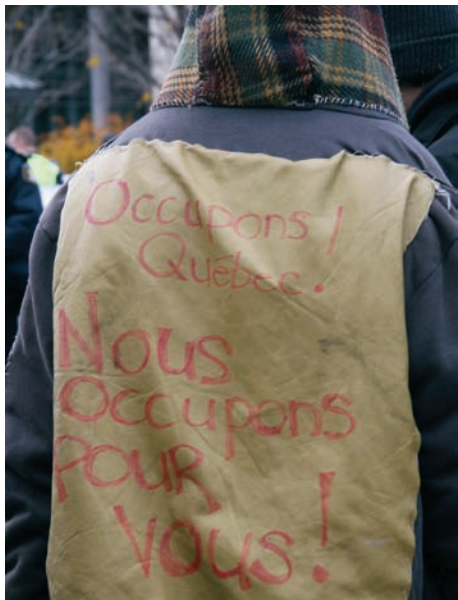 Occupons!
Québec.
Nous
Occupons
POUR
Vous!